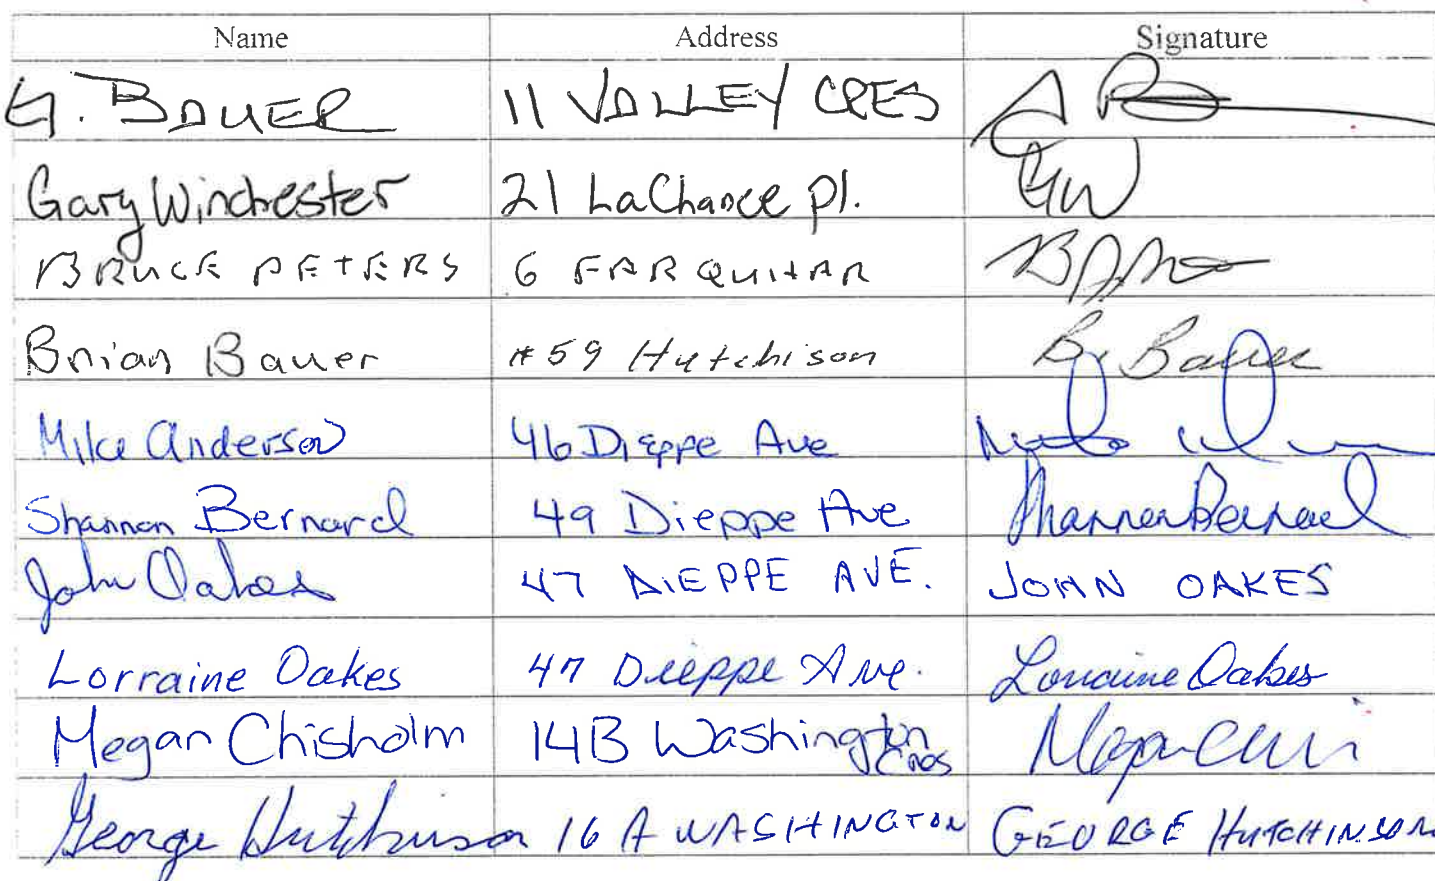 Name Address Signature
G. BAUER 11 VALLEY CRES
Gary Winchester 21 LaChance pl. GW
BRUCE PETERS 6 FARQUHAR
Brian Bauer #59 Hutchison B. Bauer
Mike Anderson 46 Dieppe Ave
Shannon Bernard 49 Dieppe Ave Shannon Bernard
John Oakes 47 DIEPPE AVE. JOHN OAKES
Lorraine Oakes 47 Dieppe Ave. Lorraine Oakes
Megan Chisholm 14B Washington Cres
George Hutchinson 16 A WASHINGTON GEORGE HUTCHINSON